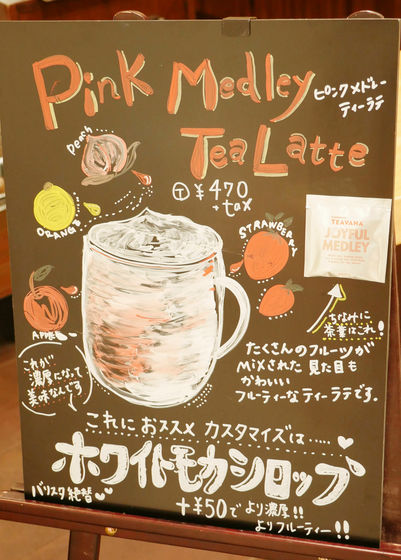 Pink Medley
ピンクメドレー
ティーラテ
Tea Latte
Peach
Ⓣ ¥470
+tax
ORANGE
STRAWBERRY
TEAVANA
JOYFUL
MEDLEY
APPLE
ちなみに
茶葉はこれ!
これが
濃厚になって
美味なんです
たくさんのフルーツが
Mixされた 見た目も
かわいい
フルーティーな ティーラテです。
これに おススメ カスタマイズは・・・・・
ホワイトモカシロップ
バリスタ絶賛
+¥50で より濃厚!!
よりフルーティー!!